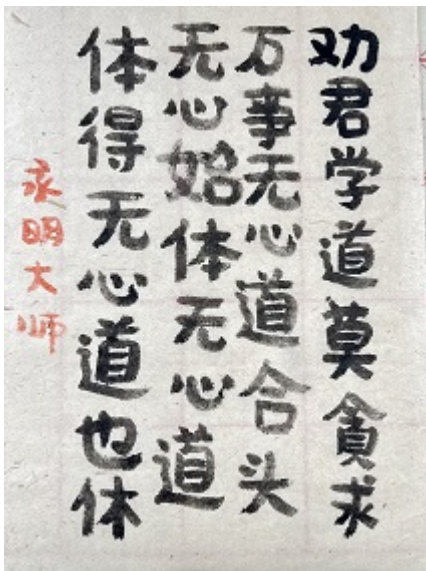 劝君学道莫贪求
万事无心道合头
无心始体无心道
体得无心道也休
永明大师